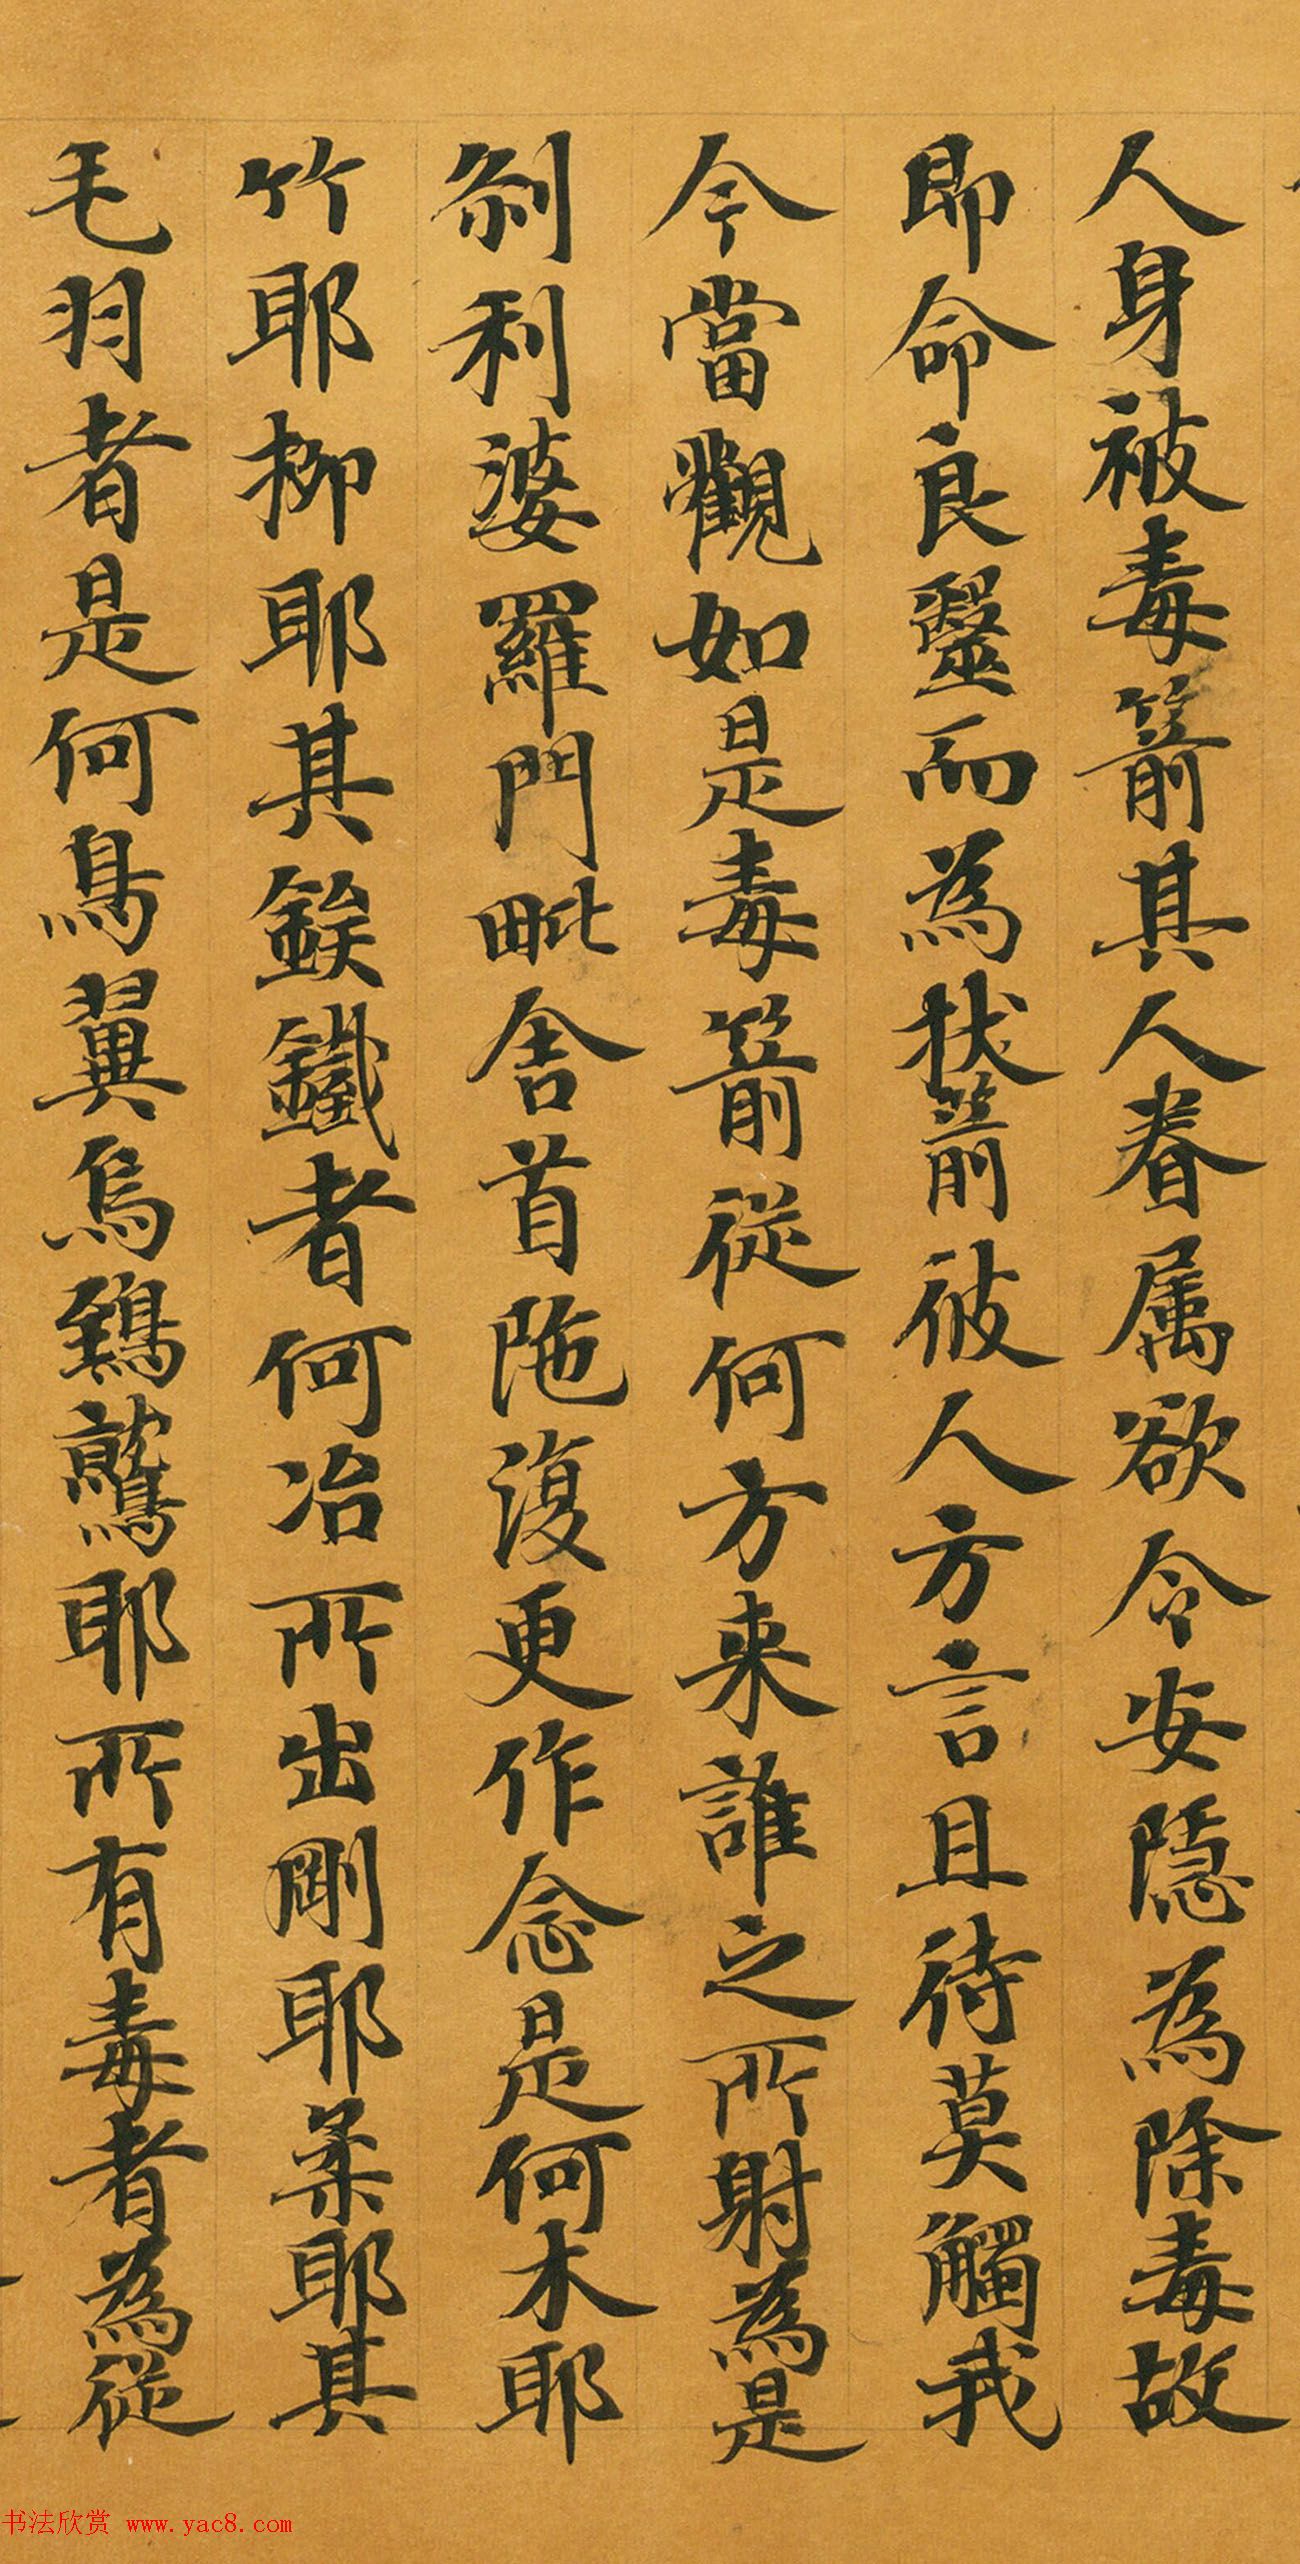 人身被毒箭其人眷属欲令安隱為除毒故
即命良毉而為拔箭彼人方言且待莫觸我
今當觀如是毒箭從何方来誰之所射為是
刹利婆羅門毗舍首陁復更作念是何木耶
竹耶柳耶其鏃鐵者何冶所出剛耶柔耶其
毛羽者是何鳥翼烏鵄鷲耶所有毒者為從
书法欣赏 www.yac8.com